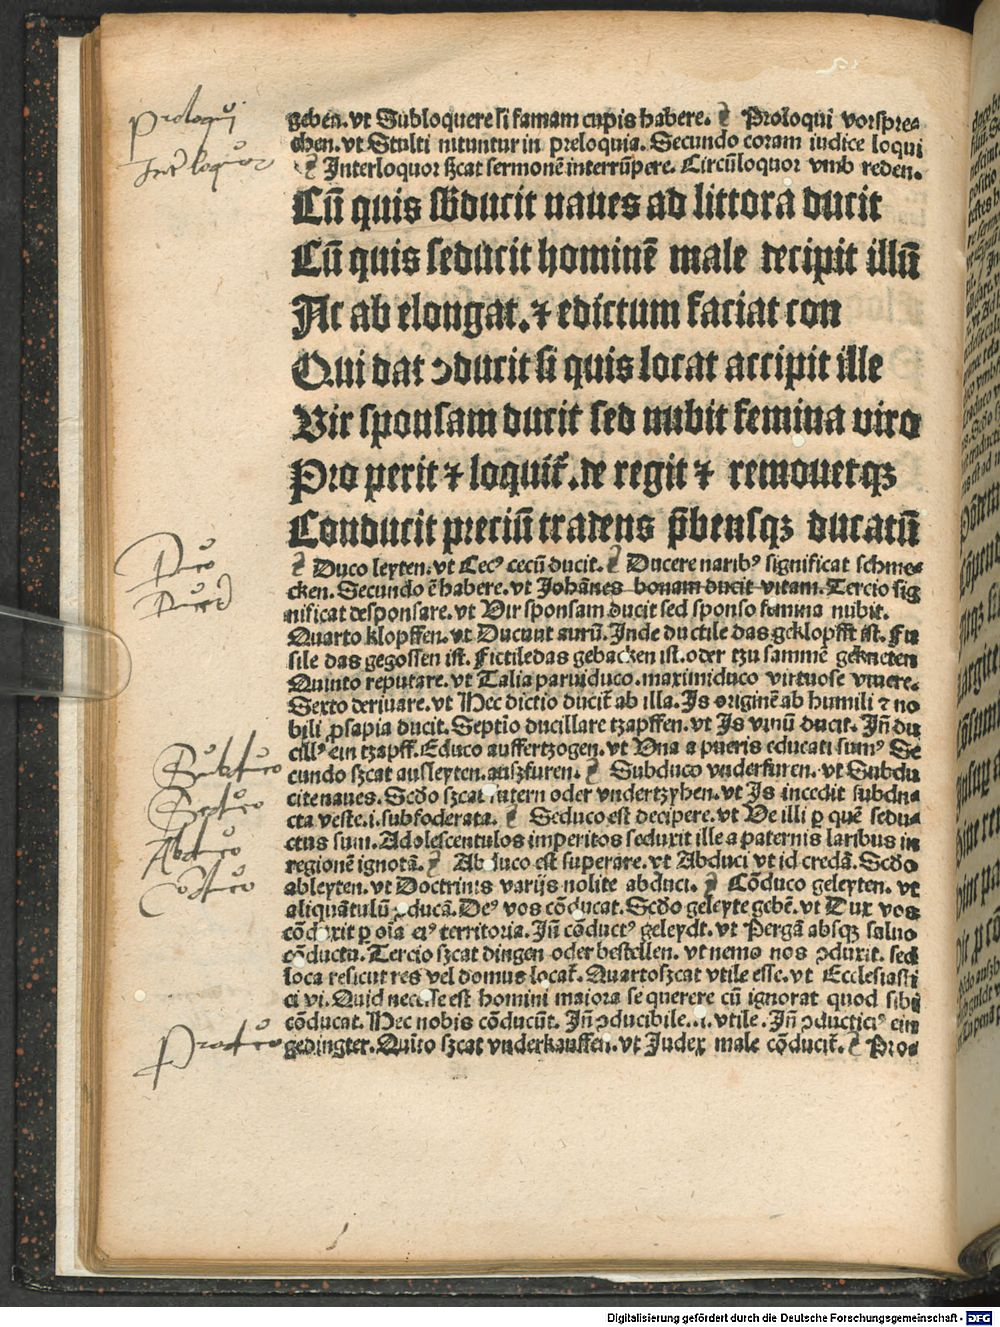 geben. vt Subloquere si famam cupis habere. Proloqui vorspre⸗
chen. vt Stulti nituntur in preloquia. Secundo coram iudice loqui
Interloquor sꝫcat sermonē interrūpere. Circūloquor vmb reden.
Cū quis sb̄ducit naues ad littora ducit
Cū quis seducit hominē male decipit illū
Ac ab elongat. ⁊ edictum faciat con
Qui dat ↄducit si quis locat accipit ille
Vir sponsam ducit sed nubit femina viro
Pro perit ⁊ loquit᷑. de regit ⁊ remouetqꝫ
Conducit preciū tradens p̄bensqꝫ ducatū
Duco leyten. vt Cecꝰ cecū ducit. Ducere naribꝰ significat schme⸗
cken. Secundo ē habere. vt Johānes bonam ducit vitam. Tercio sig
nificat desponsare. vt Vir sponsam ducit sed sponso femina nubit.
Quarto klopffen. vt Ducunt aurū. Inde ductile das geklopfft ist. Fu
sile das gegossen ist. Fictile das gebacken ist. oder tzu sammē gekneten
Quinto reputare. vt Talia parui duco. maximi duco virtuose viuere.
Sexto deriuare. vt Hec dictio ducit᷑ ab illa. Is originē ab humili ⁊ no
bili ꝓsapia ducit. Septio ducillare tzapffen. vt Is vinū ducit. Jn̄ du
cillꝰ ein tzapff. Educo auffertzogen. vt Vna a pueris educati sumꝰ Se
cundo sꝫcat ausleyten. auszfuren. Subduco vnderfuren. vt Subdu
cite naues. Scd̄o sꝫcat futern oder vndertzyhen. vt Is incedit subdu⸗
cta veste. i. subfoderata. Seduco est decipere. vt Ve illi ꝑ quē sedu⸗
ctus sum. Adolescentulos imperitos seduxit ille a paternis laribus in
regionē ignotā. Abduco est superare. vt Abduci vt id credā. Scd̄o
ableyten. vt Doctrinis varijs nolite abduci. Cōduco geleyten. vt
aliquātulū ↄducā. Deꝰ vos cōducat. Scd̄o geleyte gebē. vt Dux vos
cōduxit ꝑ oīa eiꝰ territoria. Jn̄ cōductꝰ geleydt. vt Pergā absqꝫ saluo
cōductu. Tercio sꝫcat dingen oder bestellen. vt nemo nos ↄduxit. sed
loca res sicut res vel domus locat᷑. Quarto sꝫcat vtile esse. vt Ecclesiasti
ci vi. Quid necesse est homini maiora se querere cū ignorat quod sibi
cōducat. Hec nobis cōducūt. Jn̄ ↄducibile. i. vtile. Jn̄ ↄducticiꝰ ein
gedingter. Quīto sꝫcat vnderkauffen. vt Judex male cōducit᷑. Pro⸗
Proloqui
Interloquor
Duco
Subduco
Seduco
Abduco
Produco
Digitalisierung gefördert durch die Deutsche Forschungsgemeinschaft - DFG